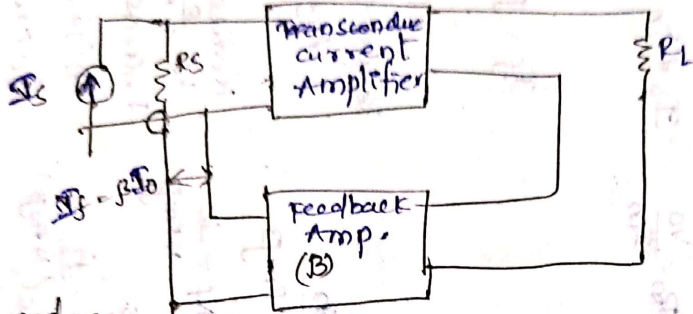 Transcondue
current
Amplifier
RS
RL
Is
If = βIo
Feedback
Amp.
(B)